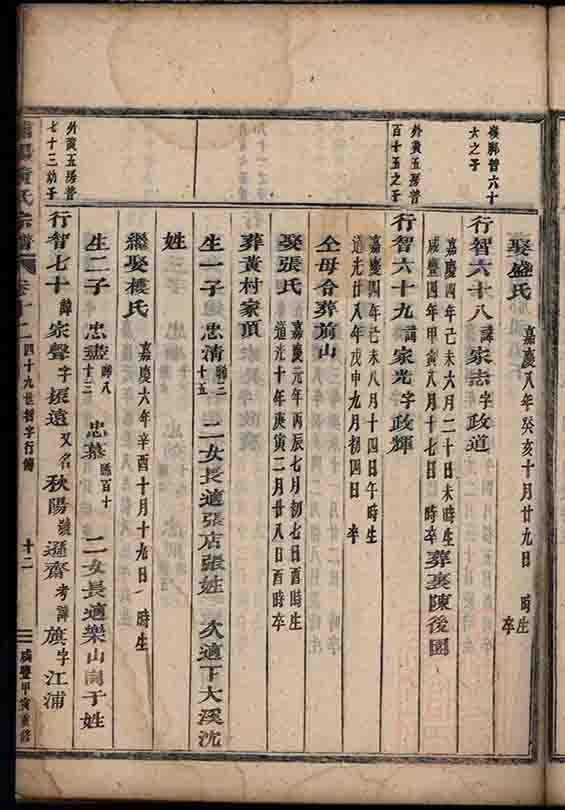 娶盛氏 嘉慶八年癸亥十月廿九日 時生 卒
嶺鄉智六十
大之子
行智六十八 諱家志字政道
嘉慶四年己未六月二十日未時生
咸豐四年甲寅八月十七日 時卒
葬裏陳後園
外黃五房普
百十五之子
行智六十九 諱家光字政輝
嘉慶四年己未八月十四日午時生
道光廿八年戊申九月初四日 卒
仝母合葬前山
娶張氏
嘉慶元年丙辰七月初七日酉時生
道光十年庚寅二月廿八日酉時卒
葬黃村家頂
生一子 忠清 聯二十五 二女長適張店張姓 次適下大溪沈
姓
繼娶樓氏 嘉慶六年辛酉十月十九日 時生
生二子 忠盡 聯八十三 忠慕 聯百十 二女長適樂山崗于姓
外黃五房普
七十三幼子
行智七十 諱家聲字振遠又名秋陽號遜齋考諱旗字江浦
氏宗譜
四十九世智字行傳
十二
咸豐甲寅重修